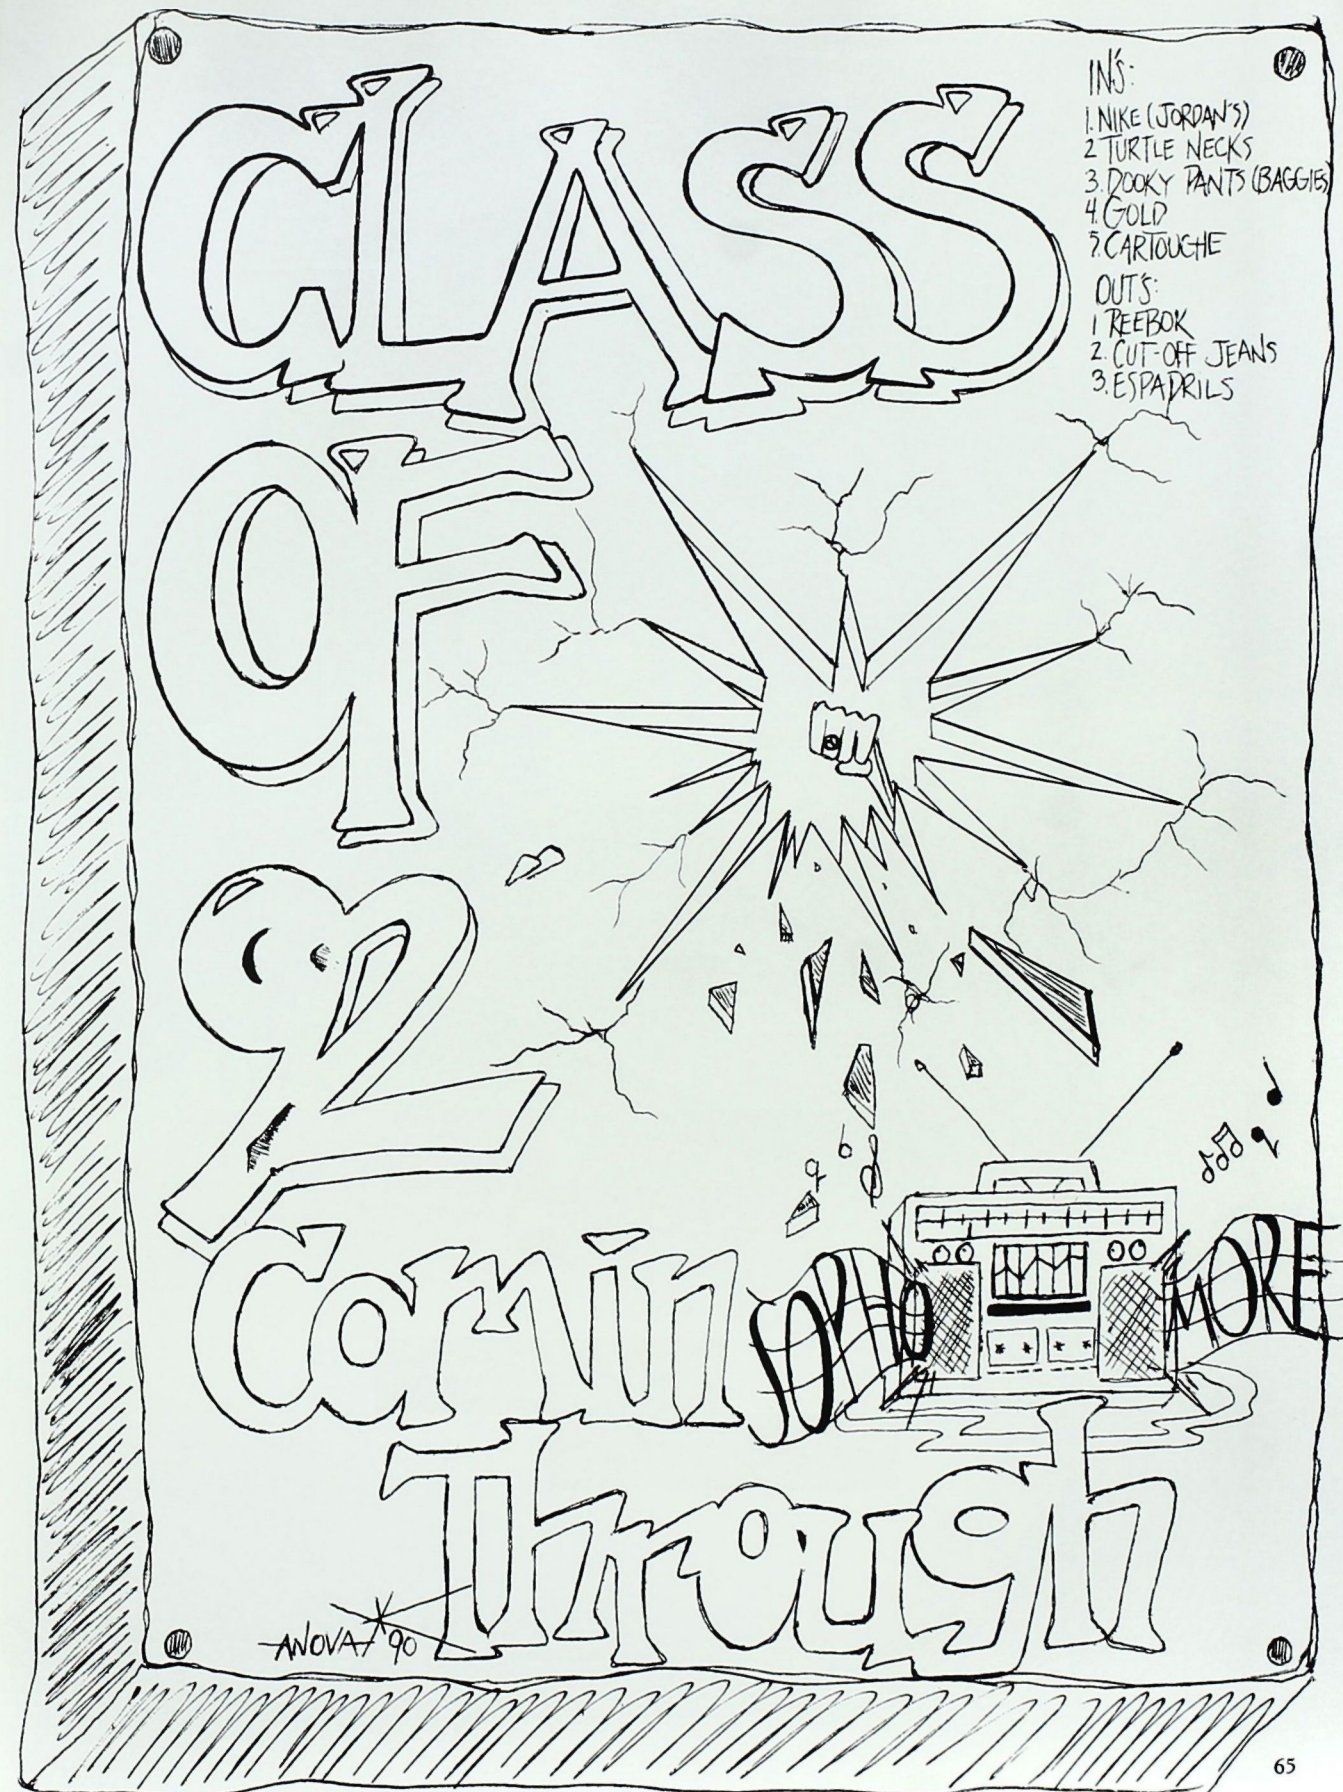 CLASS
OF
92
Comin
Through
IN'S:
1. NIKE (JORDAN'S)
2 TURTLE NECKS
3. DOOKY PANTS (BAGGIES)
4. GOLD
5. CARTOUCHE
OUT'S:
1 REEBOK
2. CUT-OFF JEANS
3. ESPADRILS
SOPHO MORE
91
ANOVA '90
65